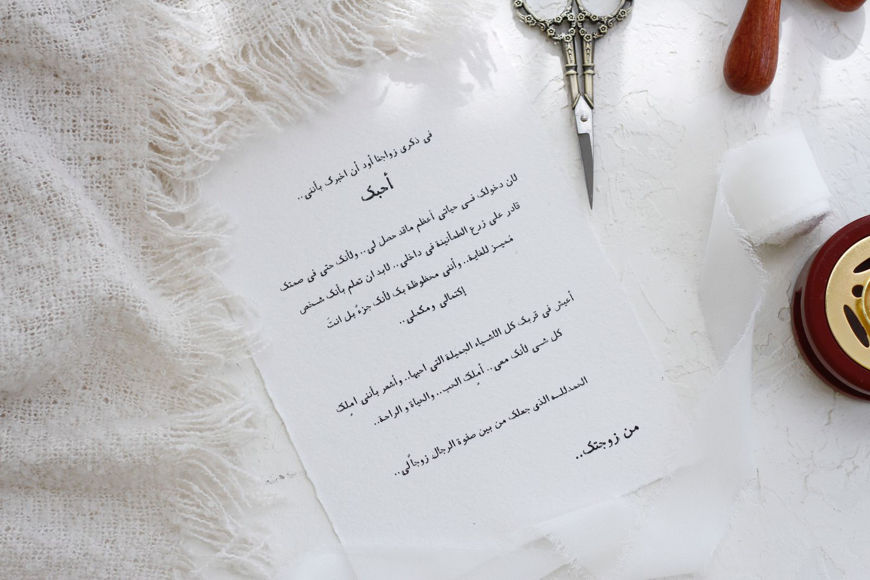 في ذكرى زواجنا أود أن اخبرك بأننى..
أحبك
لان دخولك فى حياتى أعظم ماقد حصل لى.. ولأنك حتى فى صمتك
قادر على زرع الطمأنينة فى داخلى.. لابد ان تعلم بأنك شخص
مُميـز للغاية.. وأننى محظوظة بك لأنك جزءٌ بل انتَ
إكتمالى ومكملى..
أعيش فى قربك كل الأشياء الجميلة التى احبها.. وأشعر بأننى امِلك
كل شىء لأنك معى.. أمِلك الحب.. والحياة و الراحة..
الحمدللـه الذى جعلك من بين صفوة الرجال زوجاً لى..
من زوجتك..